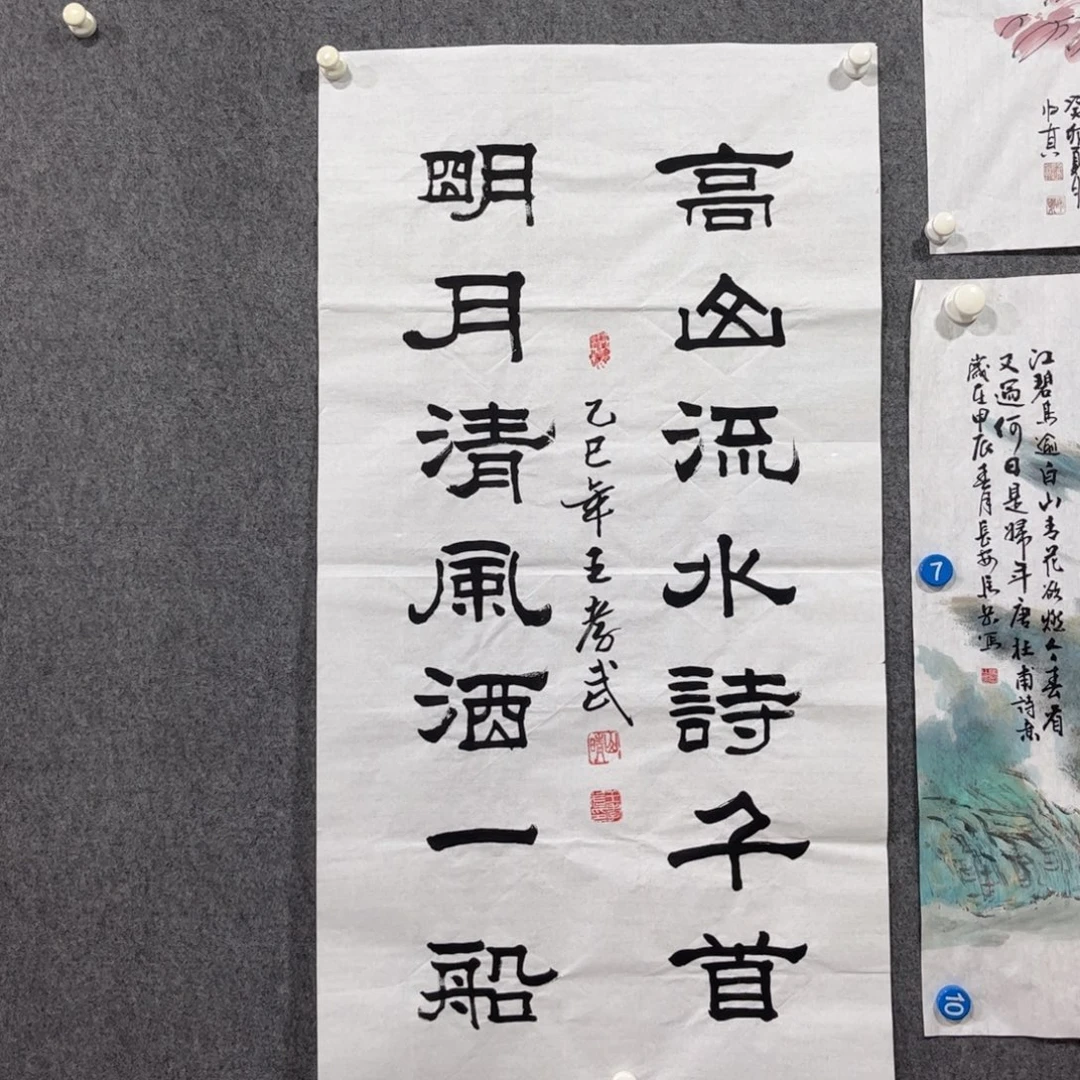 高山流水詩千首
明月清風酒一船
乙巳年王孝武
癸卯夏月
归真
江碧鸟逾白山青花欲燃今春看
又過何日是歸年唐杜甫詩意
歲在甲辰春月長安
7
10